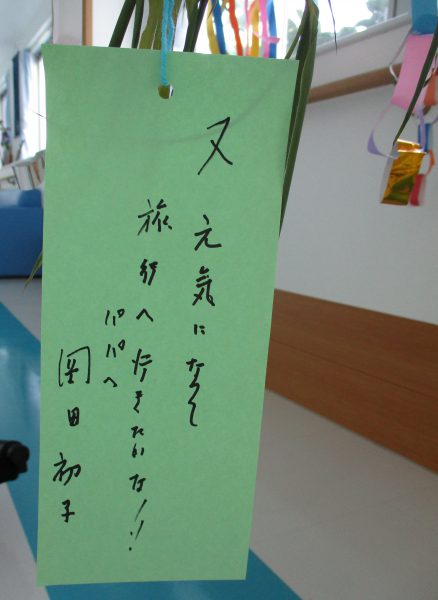 又元気になって
旅行へ行きたいな!!
パパへ
岡田初子